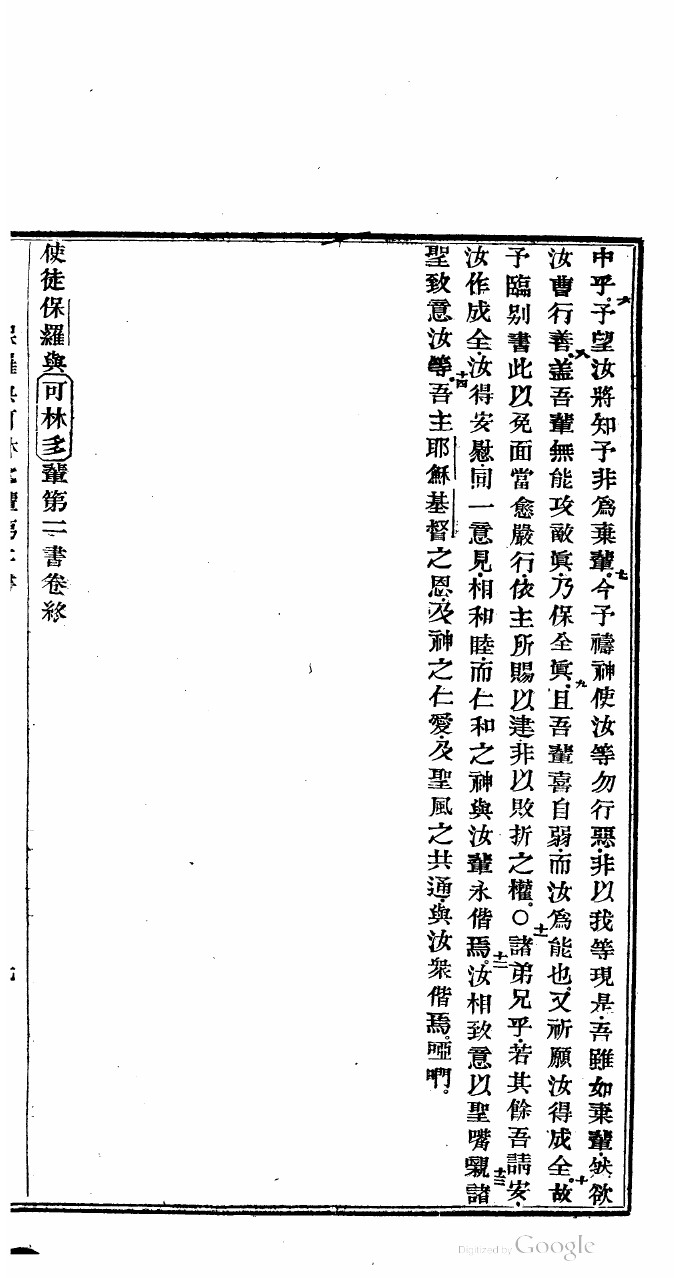 中乎六予望汝將知予非爲棄輩七今予禱神使汝等勿行惡非以我等現是吾雖如棄輩然欲
汝曹行善八蓋吾輩無能攻敵眞乃保全眞九且吾輩喜自弱而汝爲能也又祈願汝得成全十故
予臨別書此以免面當愈嚴行依主所賜以建非以敗折之權○十一諸弟兄乎若其餘吾請安
汝作成全汝得安慰同一意見相和睦而仁和之神與汝輩永偕焉十二汝相致意以聖嘴䙿十三諸
聖致意汝等十四吾主耶穌基督之恩及神之仁愛及聖風之共通與汝衆偕焉啞㗉
使徒保羅與可林多輩第二書卷終
Digitized by Google